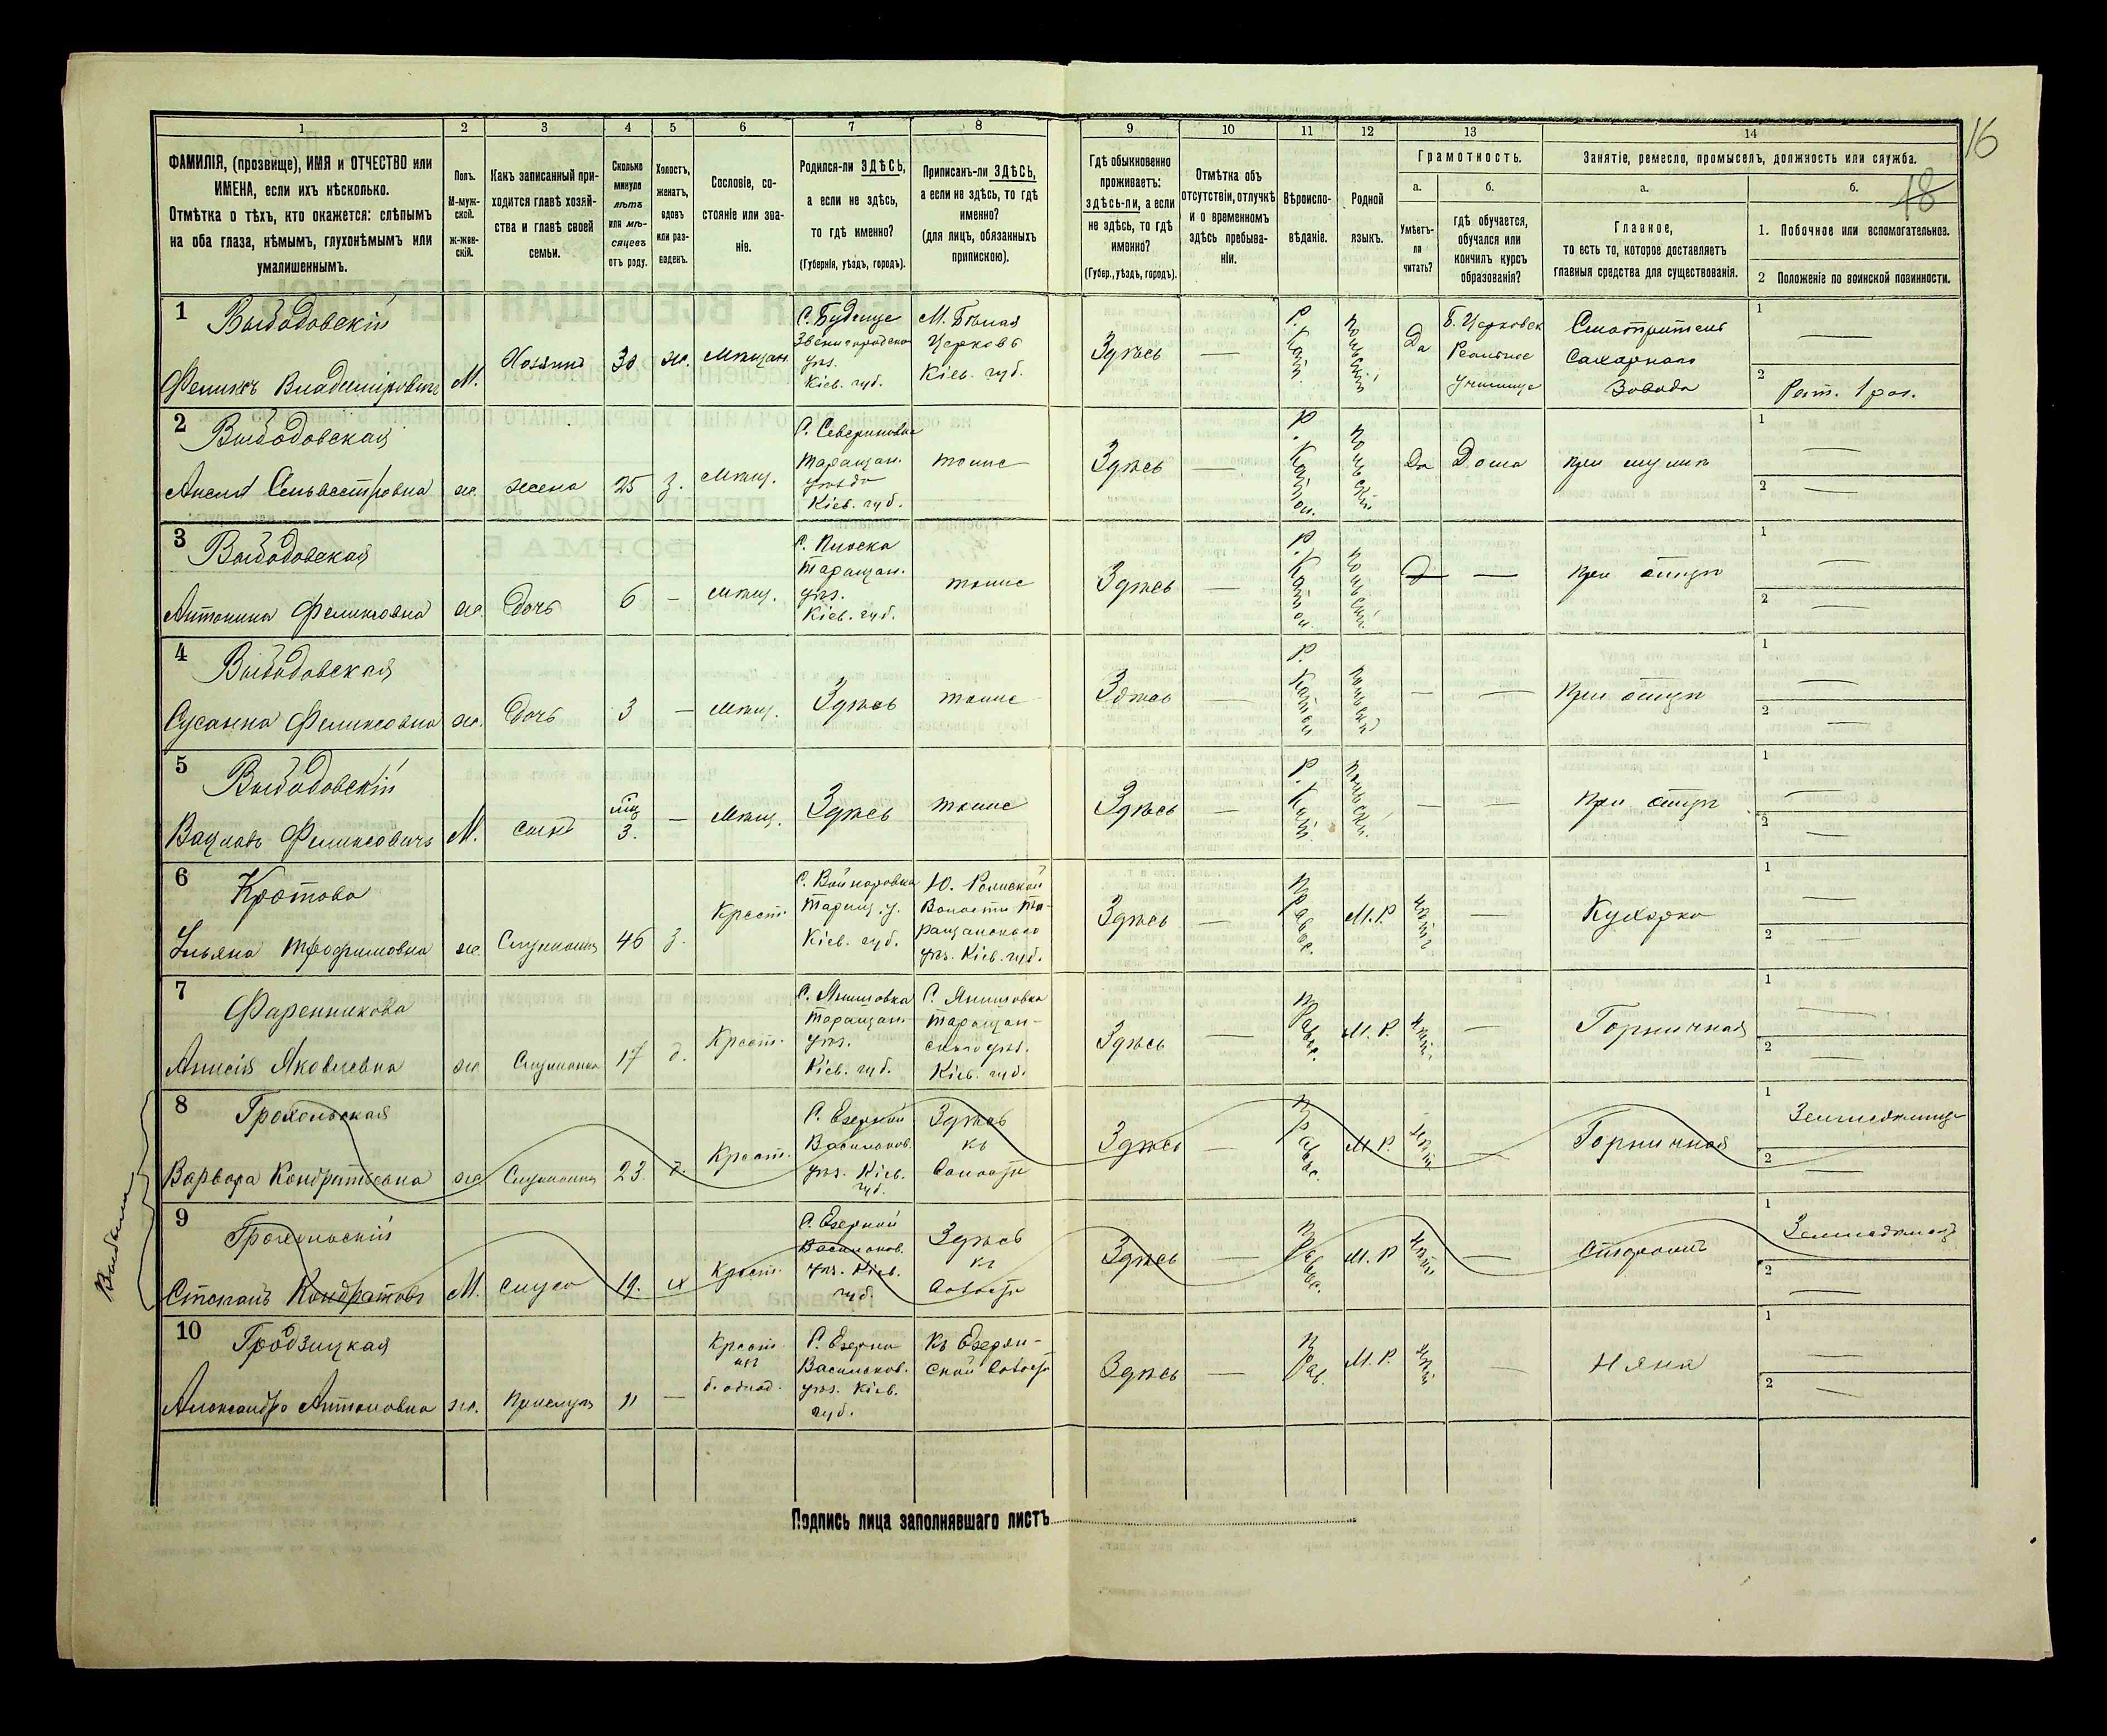 16
18
1
2
3
4
5
6
7
8
9
10
11
12
13
14
ФАМИЛІЯ, (прозвище), ИМЯ и ОТЧЕСТВО или
ИМЕНА, если ихъ нѣсколько.
Отмѣтка о тѣхъ, кто окажется: слѣпымъ
на оба глаза, нѣмымъ, глухонѣмымъ или
умалишеннымъ.
Полъ.
М-муж-
ской.
ж-жен-
скій.
Какъ записанный при-
ходится главѣ хозяй-
ства и главѣ своей
семьи.
Сколько
минуло
лѣтъ
или мѣ-
сяцевъ
отъ роду.
Холостъ,
женатъ,
вдовъ
или раз-
веденъ.
Сословіе, со-
стояніе или зва-
ніе.
Родился-ли ЗДѢСЬ,
а если не здѣсь,
то гдѣ именно?
(Губернія, уѣздъ, городъ).
Приписанъ-ли ЗДѢСЬ,
а если не здѣсь, то гдѣ
именно?
(для лицъ, обязанныхъ
припискою).
Гдѣ обыкновенно
проживаетъ:
здѣсь-ли, а если
не здѣсь, то гдѣ
именно?
(Губер., уѣздъ, городъ).
Отмѣтка объ
отсутствіи, отлучкѣ
и о временномъ
здѣсь пребыва-
ніи.
Вѣроиспо-
вѣданіе.
Родной
языкъ.
Грамотность.
а.
Умѣетъ-
ли
читать?
б.
гдѣ обучается,
обучался или
кончилъ курсъ
образованія?
Занятіе, ремесло, промыселъ, должность или служба.
а.
Главное,
то есть то, которое доставляетъ
главныя средства для существованія.
б.
1. Побочное или вспомогательное.
2 Положеніе по воинской повинности.
1
Феликсъ Владиміровичъ
М.
Хозяинъ
30
ж.
Мѣщан.
С. Будище
Звенигородско
уѣз.
Кіев. губ.
М. Бѣлая
Церковь
Кіев. губ.
Здѣсь
—
Р. Кат.
Польскій
Да
Б. Церковск
Реальное
училище
Смотритель
Сахарнаго
Завода
1
—
2
Рат. 1 раз.
2
Анеля Сильвестровна
ж.
жена
25
з.
Мѣщ.
С. Севериновка
Таращан.
уѣзда
Кіев. губ.
тоже
Здѣсь
—
Р. Катол.
Польскій
Да
Дома
при мужѣ
1
—
2
—
3
Антонина Феликсовна
ж.
дочь
6
—
Мѣщ.
С. Плоска
Таращан.
уѣз.
Кіев. губ.
тоже
Здѣсь
—
Р. Катол.
Польскій
—
при отцѣ
1
—
2
—
4
Сусанна Феликсовна
ж.
дочь
3
—
Мѣщ.
Здѣсь
тоже
Здѣсь
—
Р. Катол
Польскій
—
—
при отцѣ
1
—
2
—
5
Вацлавъ Феликсовичъ
М.
сынъ
мц
3.
—
Мѣщ.
Здѣсь
тоже
Здѣсь
—
Р. Кат.
Польскій
—
—
при отцѣ
1
—
2
—
6
Кротова
Ульяна Трофимовна
ж.
Служанка
46
з.
Крест.
Таращ. у.
Кіев. губ.
Волости Та-
ращанскаго
уѣз. Кіев. губ.
Здѣсь
—
Правос.
М. Р.
Нѣтъ
—
Кухарка
1
—
2
—
7
Фаренникова
Анисія Яковлевна
ж
Служанка
17
д.
Крест.
С. Янишовка
Таращан.
уѣз.
Кіев. губ.
С. Янишовка
Таращан-
скаго уѣз.
Кіев. губ.
Здѣсь
—
Правос.
М. Р.
Нѣт.
—
Горничная
1
—
2
—
8
Грохольская
Варвара Кондратьевна
ж
Служанка
23.
д.
Крест.
С. Езерной
Васильков.
уѣз. Кіев.
губ.
Здѣсь
къ
волости
Здѣсь
—
Правос.
М. Р.
Нѣт
Горничная
1
2
—
Выбыли
9
Грохольскій
Степанъ Кондратовъ
М.
слуга
19.
х
Крест.
С. Езерной
Васильков.
уѣз. Кіев.
губ.
Здѣсь
къ
волости
Здѣсь
—
Правос.
М. Р
Нѣт
—
Сторожъ
1
Земледѣлец
2
—
10
Гродзицкая
Александра Антоновна
ж.
Прислуга
11
—
Крест.
из
б. однод.
С. Езерна
Васильков.
уѣз. Кіев.
губ.
Къ Езерян-
ской волости
Здѣсь
—
Прав.
М. Р.
Нѣт
—
Няня
1
—
2
—
Подпись лица заполнявшаго листъ